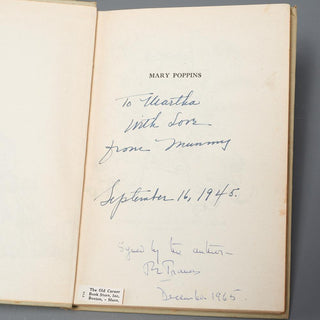 MARY POPPINS
To Martha
With Love
from Mummy
September 16, 1945.
Signed by the author—
P.L. Travers
December 1965
The Old Corner
Book Store, Inc.
Boston, - Mass.